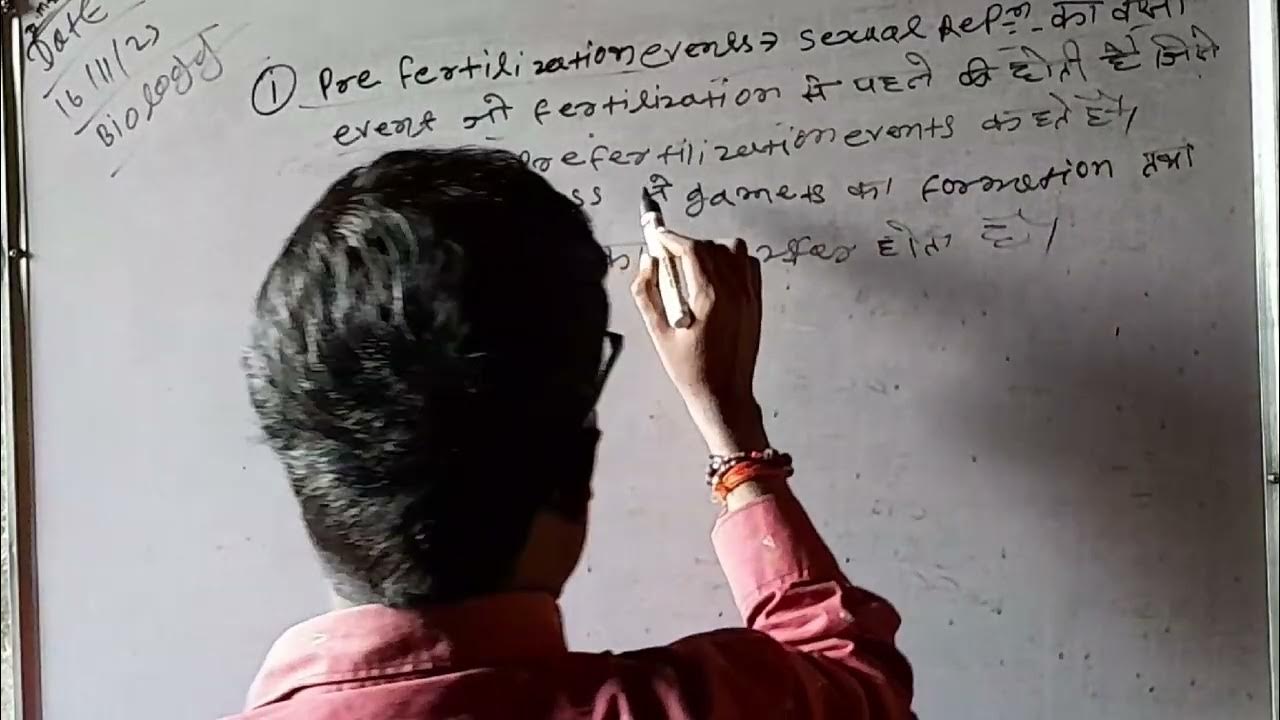 Date
16/11/23
Biology
① Pre fertilization events → Sexual Repⁿ. का वैसा
event जो fertilization से पहले की होती है जिसे
prefertilization events कहते है।
ss में gamets का formation तथा
sfer होता है।